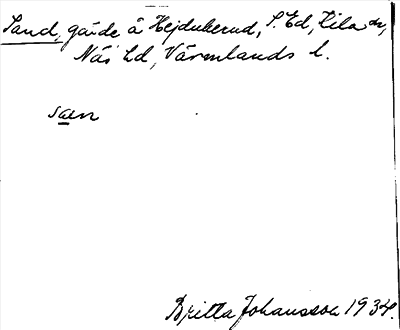 Sand, gärde å Hejdukerud, S. Ed, Kila sn,
Näs hd, Värmlands l.
saɳ
Britta Johansson 1934.